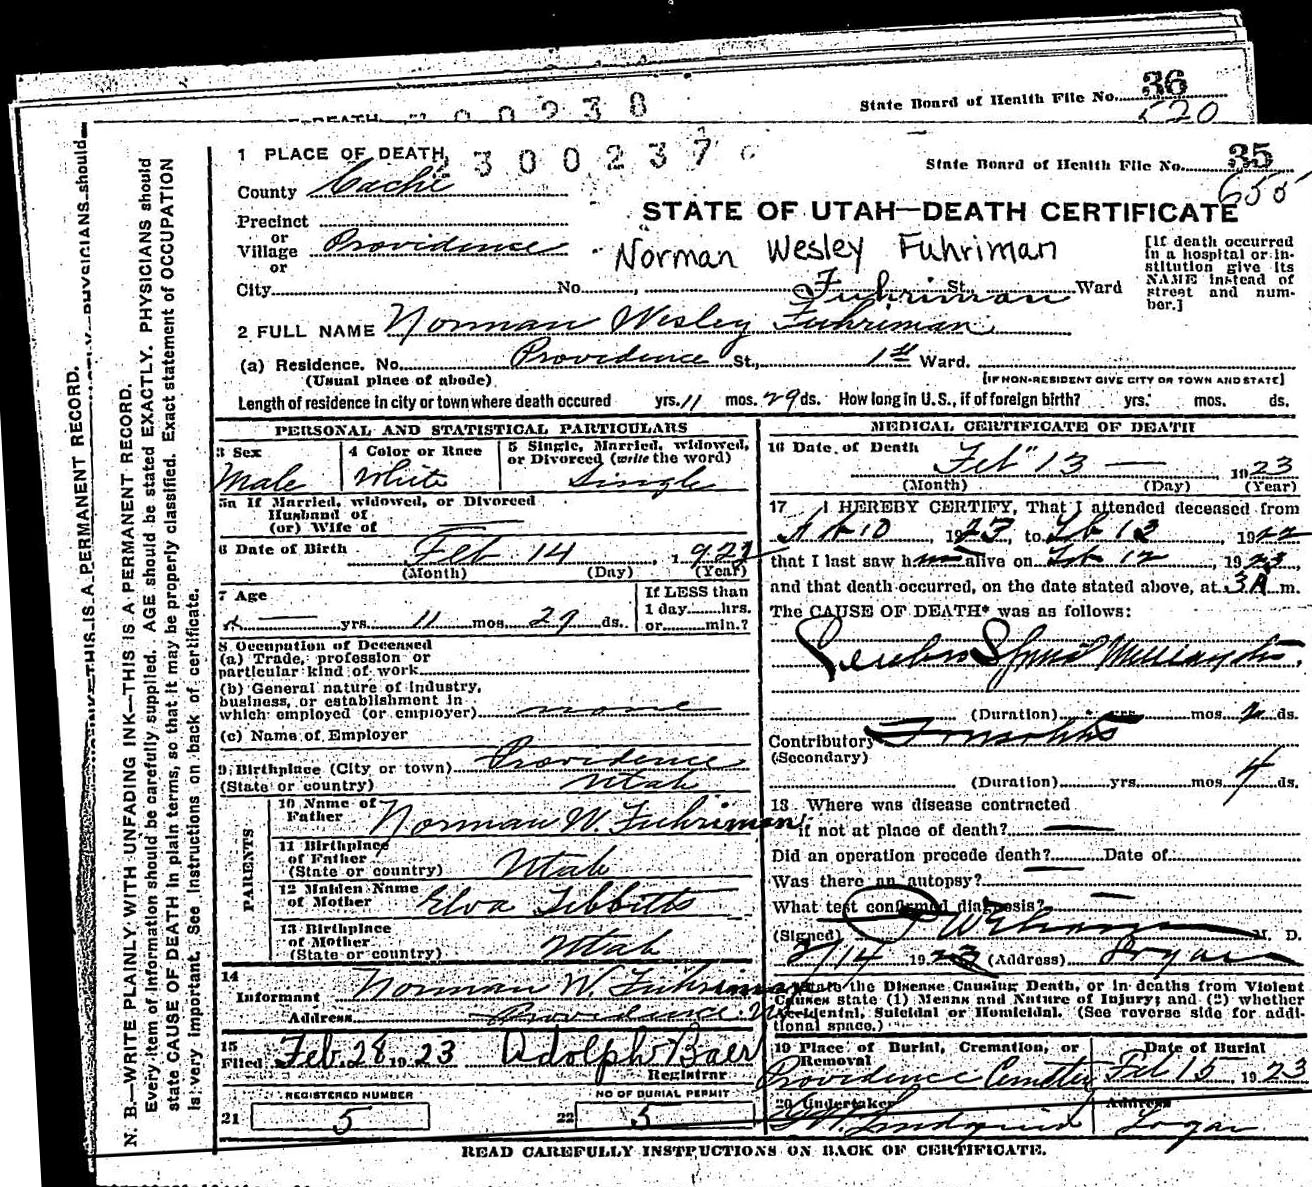 State Board of Health File No. 36
520
2300238
1 PLACE OF DEATH
2300237
State Board of Health File No. 35
655
County Cache
STATE OF UTAH—DEATH CERTIFICATE
Precinct
or
Village Providence
or
Norman Wesley Fuhriman
[If death occurred in a hospital or institution give its NAME instead of street and number.]
City No. St. Ward
Fuhriman
2 FULL NAME Norman Wesley Fuhriman
(a) Residence. No. Providence St., 1st Ward.
(Usual place of abode) [IF NON-RESIDENT GIVE CITY OR TOWN AND STATE]
Length of residence in city or town where death occured yrs. 11 mos. 29 ds. How long in U.S., if of foreign birth? yrs. mos. ds.
PERSONAL AND STATISTICAL PARTICULARS
3 Sex Male
4 Color or Race White
5 Single, Married, widowed, or Divorced (write the word) Single
5a If Married, widowed, or Divorced
Husband of
(or) Wife of
6 Date of Birth Feb 14 1922
(Month) (Day) (Year)
7 Age yrs. 11 mos. 29 ds.
If LESS than 1 day hrs. or min.?
8 Occupation of Deceased
(a) Trade, profession or
particular kind of work
(b) General nature of industry,
business, or establishment in
which employed (or employer) none
(c) Name of Employer
9 Birthplace (City or town) Providence
(State or country) Utah
PARENTS
10 Name of Father Norman W. Fuhriman
11 Birthplace of Father (State or country) Utah
12 Maiden Name of Mother Elva Tibbitts
13 Birthplace of Mother (State or country) Utah
14 Informant Norman W. Fuhriman
Address Providence
15 Filed Feb. 28 1923 Adolph Baer
Registrar
REGISTERED NUMBER
21 5
NO OF BURIAL PERMIT
22 5
MEDICAL CERTIFICATE OF DEATH
16 Date of Death Feb 13 1923
(Month) (Day) (Year)
17 I HEREBY CERTIFY, That I attended deceased from
10, 1923, to Feb 12, 19
that I last saw him alive on Feb 12, 1923
and that death occurred, on the date stated above, at 3 A m.
The CAUSE OF DEATH* was as follows:
Cerebro Spinal
(Duration) yrs. mos. 2 ds.
Contributory Tonsilitis
(Secondary)
(Duration) yrs. mos. 4 ds.
18 Where was disease contracted
if not at place of death?
Did an operation precede death? Date of
Was there an autopsy?
What test confirmed diagnosis?
(Signed) M. D.
2/14 1923 (Address) Logan
State the Disease Causing Death, or in deaths from Violent
Causes state (1) Means and Nature of Injury; and (2) whether
Accidental, Suicidal or Homicidal. (See reverse side for additional space.)
19 Place of Burial, Cremation, or Removal Date of Burial
Providence Cemetery Feb 15, 1923
20 Undertaker Address
Lindquist Logan
READ CAREFULLY INSTRUCTIONS ON BACK OF CERTIFICATE.
N. B.—WRITE PLAINLY WITH UNFADING INK—THIS IS A PERMANENT RECORD.
Every item of information should be carefully supplied. AGE should be stated EXACTLY. PHYSICIANS should
state CAUSE OF DEATH in plain terms, so that it may be properly classified. Exact statement of OCCUPATION
is very important. See instructions on back of certificate.